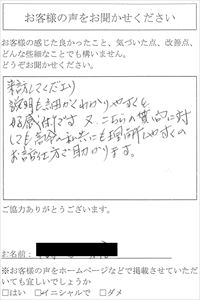 お客様の声をお聞かせください
お客様の感じた良かったこと、気づいた点、改善点、
どんな些細なことでも構いません。
どうぞお聞かせください。
来訪してくださり
説明も細かくわかりやすく
好感触です 又、こちらの質問に対
しても高令の私共にも理解しやすくの
お話仕方で助かります。
ご協力ありがとうございます。
お名前:
※お客様の声をホームページなどで掲載させていただ
いても宜しいでしょうか
□はい □イニシャルで □ダメ